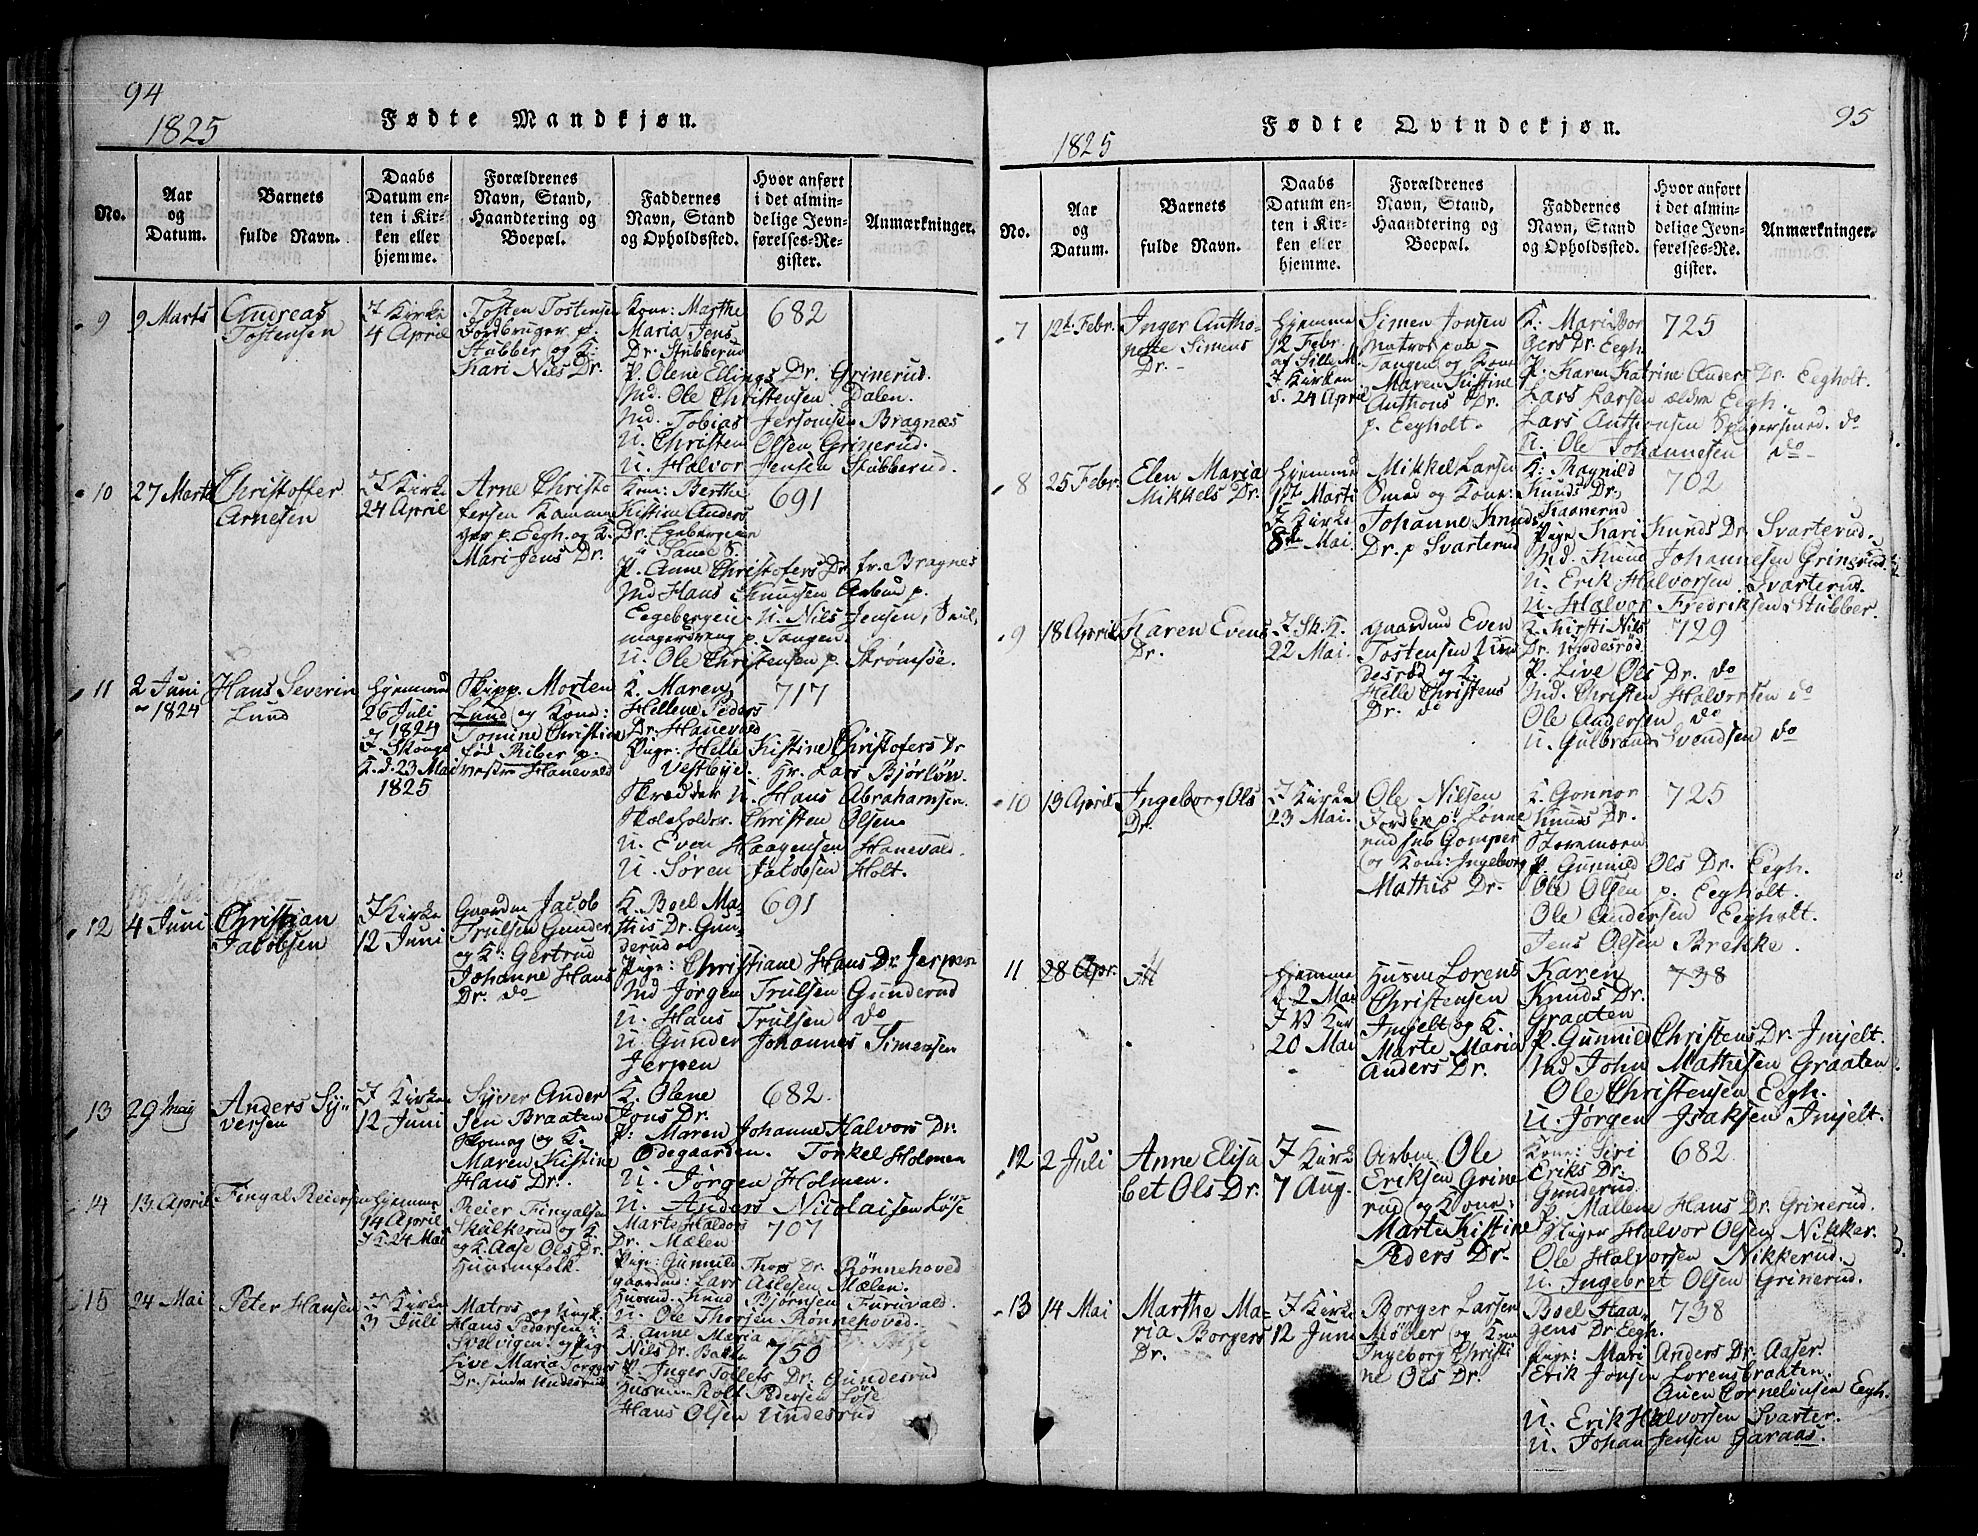 94
1825
Fødte Mandkjøn.
No.
Aar
og
Datum.
Barnets
fulde Navn.
Daabs
Datum en-
ten i Kir-
ken eller
hjemme.
Forældrenes
Navn, Stand,
Haandtering og
Boepæl.
Faddernes
Navn, Stand
og Opholdssted.
Hvor anført
i det almin-
delige Jevn-
førelses-Re-
gister.
Anmærkninger.
9
9 Marts
Andreas
Tostensen
I Kirke
4 April
Tosten Tostensen
Jordbruger p.
Stubber og K:
Kari Nils Dr.
Kone: Marthe
Maria Jens
Dr. Stubberud
P. Olene Ellings Dr. Grinerud.
Md. Ole Christensen Dalen.
Md. Tobias Jersomsen Bragnæs
U. Christen Olsen Grinerud.
U. Halvor Jensen Stubberud.
682
10
27 Marts
Christoffer
Arnesen
I Kirke
24 April
Arne Christo
fersen
p. Eegh. og K.
Mari Jens Dr.
Kone: Berthe
Kistine Anders
Dr. Egebergeie
P. Anne Christofers Dr. fr. Bragnes
Md Hans Knudsen Arbud p.
Eegebergeie U. Nils Jensen, Seil,
magerdreng p. Tangen.
U. Ole Christensen p. Strømsøe.
691
11
2 Juni
1824
Hans Severin
Lund
Hjemme
26 Juli
1824
I Skouge
K. d. 23 Mai
1825
Skipp. Morten
Lund og Kone:
Tomine Christine
fød Riber p.
vestre Hanevald
K. Maren
Hellene Peders
Dr. Hanevald
Pige: Helle Kistine Christofers Dr
Vestbye. Hr. Lars Bjørløw.
Skredder U. Hans Abrahamsen
Skoleholder. Christen Olsen
U. Even Haagensen Hanevald.
U. Søren Jacobsen Holt.
717
12
4 Juni
Christian
Jacobsen
I Kirke
12 Juni
Gaardm Jacob
Trulsen Gunder
og K: Gertrud
Johanne Hans
Dr. do
K. Boel Ma-
this Dr. Gun-
derud
Pige: Christiane Hans Dr. Jerpen
Md Jørgen Trulsen Gunderud
U. Hans Trulsen do
U. Gunder Johannes Simensen
Jerpen
691
13
29 Maj
Anders Sy-
versen
I Kirke
12 Juni
Syver Ander
sen Braaten
Skomag og K.
Maren Kistine
Hans Dr.
K. Olene
Jons Dr.
P: Maren Johanne Halvors Dr.
Ødegaarden. Torkel Holmen
U. Jørgen Holmen.
U. Anders Nicolaisen Løse
682.
14
13 April
Fingal Reiersen
Hjemme
14 April
I K. 24 Mai
Reier Fingalsen
Skalkerud og K.
og K. Aase Ols Dr.
Huusmfolk.
Marte Haldors
Dr. Mælen
Pige: Gunnild Thors Dr. Rønnehoved
gaardmd: Lars Aslesen Mælen.
Huusmd. Knud Bjørnsen Furuvald.
U. Ole Thorsen Rønnehoved.
707
15
24 Mai
Peter Hansen
I Kirke
3 Juli
Matros og Ungk:
Hans Pedersen
Svelvigen. og Pige
Live Maria Torgers
Dr. søndr Undesrud
K. Anne Maria
Nils Dr. Bakke
P. Inger Tollefs Dr. Gundesrud
Husm. Rolf Pedersen Løse
Hans Olsen Undesrud
750
95
1825
Fødte Qvindekjøn.
No.
Aar
og
Datum.
Barnets
fulde Navn.
Daabs
Datum en-
ten i Kir-
ken eller
hjemme.
Forældrenes
Navn, Stand,
Haandtering og
Boepæl.
Faddernes
Navn, Stand
og Opholdssted.
Hvor anført
i det almin-
delige Jevn-
førelses-Re-
gister.
Anmærkninger.
7
12te Febr.
Inger Antho-
nette Simens
Dr.
Hjemme
12 Febr.
af Sille M.
I Kirken
d. 24 April
Simen Jonsen
Matros paa
Tangen og Kone
Maren Kistine
Anthons Dr.
p. Eegholt.
K: Mari Bor
gers Dr. Eegh.
P. Karen Katrine Anders Dr. Eegholt.
Lars Larsen ældre Eegh.
Lars Anthonsen do
U. Ole Johannesen do
725
8
25 Febr.
Elen Maria
Mikkels Dr.
Hjemme
1ste Marts
I Kirke
8de Mai.
Mikkel Larsen
Smed og Kone:
Johanne Knuds
Dr. p Svarterud
K: Ragnild
Knuds Dr.
Haanerud
Pige Kari Knuds Dr. Svarterud.
Md. Knud Johannesen Grinerud.
U. Erik Halvorsen Svarterud.
U. Halvor Fredriksen Stubber
702
9
18 April
Karen Evens
Dr.
I Sk. K.
22 Mai.
Gaardmd Even
Tostensen Un
desrød og K.
Helle Christens
Dr. do
K. Kirsti Nils
Dr. Undesrød
P. Live Ols Dr. do
Md. Christen Halvorsen do
Ole Andersen do
U. Gulbrand Svendsen do
729
10
13 April
Ingeborg Ols
Dr.
I Kirke
23 Mai.
Ole Nilsen
Jordbr p: Lønne
rud sub Gomper
og Kone: Ingeborg
Mathis Dr.
K. Gonnor
Knuds Dr.
P. Gunnild Ols Dr. Eegh.
Ole Olsen p. Eegholt.
Ole Andersen Eegholt.
Jens Olsen Brekke.
725
11
28 Apr.
M
Hjemme
d 2 Mai
I V Kir
20 Mai
Husm Lorens
Christensen
Injelt og K.
Marte Maria
Anders Dr.
Karen
Knuds Dr.
Graaten
P. Gunnild Christens Dr. Injelt.
Md John Mathisen Graaten
Ole Christensen Eegh.
U. Jørgen Isaksen Injelt.
738
12
2 Juli
Anne Elisa
bet Ols Dr.
I Kirk
7 Aug.
Arbm Ole
Eriksen Grine
rud og Kone:
Marte Kistine
Peders Dr.
Kone: Siri
Eriks Dr.
Gunderud.
P. Mallene Hans Dr. Grinerud.
Halvor Olsen Nikker.
Ole Halvorsen Nikkerud.
U. Ingebret Olsen Grinerud.
682
13
14 Mai
Marthe Ma-
ria Borgers
Dr.
I Kirke
12 Juni
Borger Larsen
Møller og Kone
Ingeborg Christi
ne Ols Dr.
Boel Haa-
gens Dr Eegh.
Pige: Mari Anders Dr. Aaser.
Erik Jonsen Lorensbraaten.
Auen Cornelinsen Eegh.
U. Erik Halvorsen Svarter.
U. Johan Jensen Garaas.
738